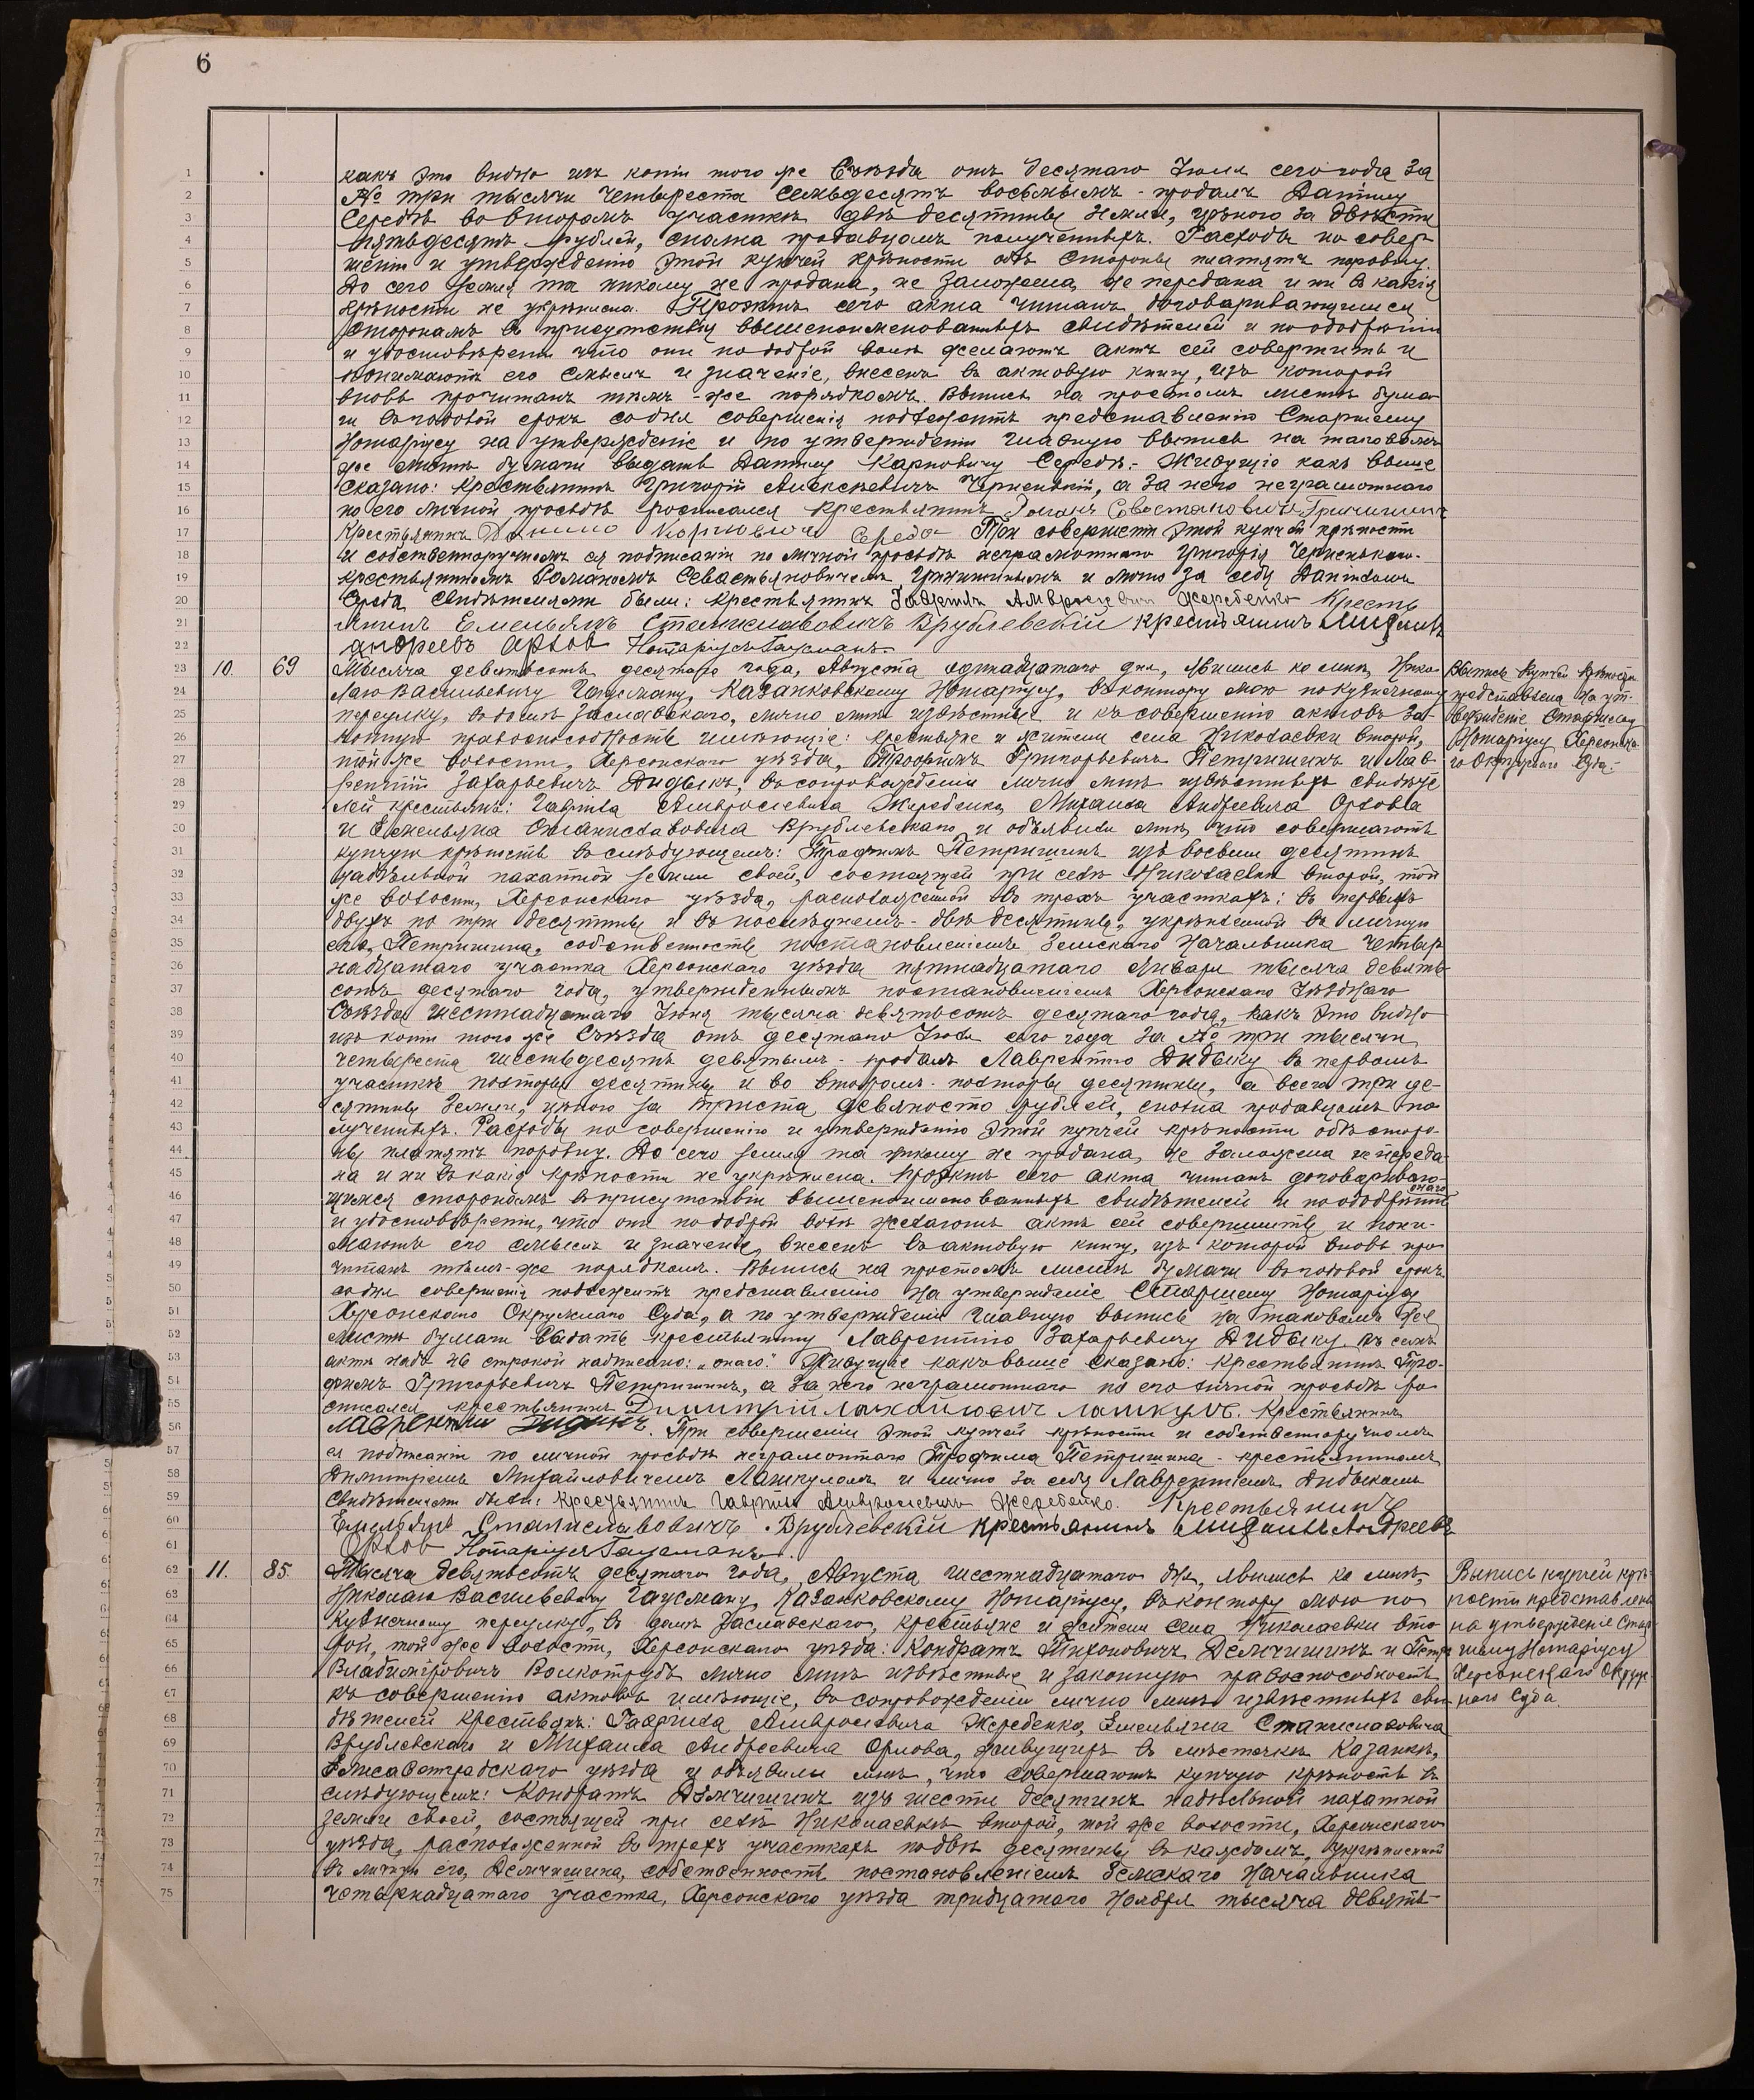 6
1 какъ это видно изъ копіи того же Съѣзда отъ десятаго Іюля сего года за
2 № три тысячи четыреста семьдесятъ восьмымъ - продалъ Данiилу
3 Середѣ во второмъ участкѣ двѣ десятины земли, цѣною за двѣсти
4 пятьдесятъ рублей, сполна продавцомъ полученныхъ. Расходы по совер
5 шенію и утвержденію этой купчей крѣпости обѣ стороны платятъ поровну.
6 До сего земля та никому не продана, не заложена, не передана и ни въ какія
7 крѣпости не укрѣплена. Проэктъ сего акта читанъ договаривающимся
8 сторонамъ въ присутствіи вышепоименованныхъ свидѣтелей и по одобреніи
9 и удостовѣреніи что они по доброй волѣ желаютъ актъ сей совершить и
10 понимаютъ его смыслъ и значеніе, внесенъ въ актовую книгу, изъ которой
11 вновь прочитанъ тѣмъ-же порядкомъ. Выпись на простомъ листѣ бума
12 ги въ годовой срокъ со дня совершенія подлежитъ представленію Старшему
13 Нотаріусу на утвержденіе и по утвержденіи главную выпись на таковомъ
14 же листѣ бумаги выдать Данiилу Карповичу Середѣ.- Живущіе какъ выше
15 сказано: крестьянинъ Григорій Алексѣевичъ Чернецкій, а за него неграмотнаго
16 по его личной просьбѣ росписался крестьянинъ Романъ Севостяновичъ Гричишинъ
17 Крестьянинъ Данило Карпович Середа При совершеніи этой купчей крѣпости
18 и собственноручномъ ея подписаніи по личной просьбѣ неграмотнаго Григорія
19 крестьяниномъ Романомъ Севастьяновичемъ и лично за себя Данiиломъ
20 Середа, свидѣтелями были: крестьянинъ Гаврiилъ Амвросіевичъ Жеребенко Кресть
21 янинъ Емельянъ Станиславовичъ Врублевскій крестьянинъ Михаилъ
22 Андреевъ Арлов Нотаріусъ Гаусманъ.
23 10. 69 Тысяча девятьсотъ десятаго года, Августа одинадцатаго дня, явились ко мнѣ, Нико- Выпись купчей крѣпости
24 лаю Васильевичу Гаусману, Казанковскому Нотаріусу, въ контору мою по Кузнечному представлена на ут-
25 переулку, въ домѣ Заславскаго, лично мнѣ извѣстные и къ совершенію актовъ за- вержденіе Старшему
26 конную правоспособность имѣющіе: крестьяне и жители села Николаевки второй, Нотаріусу Херсонска-
27 той же волости, Херсонскаго уѣзда, Трофимъ Григорьевичъ Петришинъ и Лав го Окружнаго Суда.-
28 рентій Захарьевичъ Дидыкъ, въ сопровожденіи лично мнѣ извѣстныхъ свидѣте
29 лей крестьянъ: Гаврiила Амвросіевича Жеребенка, Михаила Андреевича Орлова
30 и Емельяна Станиславовича Врублевскаго и объявили мнѣ, что совершаютъ
31 купчую крѣпость въ слѣдующемъ: Трофимъ Петришинъ изъ восьми десятинъ
32 надѣльной пахатной земли своей, состоящей при селѣ Николаевкѣ второй, той
33 же волости, Херсонскаго уѣзда, расположенной въ трехъ участкахъ: въ первыхъ
34 двухъ по три десятины и въ послѣднемъ - двѣ десятины, укрѣпленной въ личную
35 его, Петришина, собственность постановленіемъ Земскаго Начальника четыр
36 надцатаго участка Херсонскаго уѣзда пятнадцатаго Января тысяча девять
37 сотъ десятаго года, утвержденнымъ постановленіемъ Херсонскаго Уѣзднаго
38 Съѣзда шестнадцатаго Іюня тысяча девятьсотъ десятаго года, какъ это видно
39 изъ копіи того же Съѣзда отъ десятаго Іюля сего года за № три тысячи
40 четыреста шестьдесятъ девятымъ - продалъ Лаврентію Дидыку въ первомъ
41 участкѣ полторы десятины и во второмъ - полторы десятины, а всего три де-
42 сятины земли, цѣною за триста девяносто рублей, сполна продавцомъ по
43 лученныхъ. Расходы по совершенію и утвержденію этой купчей крѣпости обѣ сторо-
44 ны платятъ поровну. До сего земля та никому не продана, не заложена и переда-
45 на и ни въ какія крѣпости не укрѣплена. Проэктъ сего акта читанъ договариваю-
46 щимся сторонамъ въ присутствіи вышепоименованныхъ свидѣтелей и по одобреніи онаго
47 и удостовѣреніи, что они по доброй волѣ желаютъ актъ сей совершить и пони-
48 маютъ его смыслъ и значеніе, внесенъ въ актовую книгу, изъ которой вновь про
49 читанъ тѣмъ-же порядкомъ. Выпись на простомъ листѣ бумаги въ годовой срокъ
50 со дня совершенія подлежитъ представленію на утвержденіе Старшему Нотаріусу
51 Херсонскаго Окружнаго Суда, а по утвержденіи главную выпись на таковомъ же
52 листѣ бумаги выдать крестьянину Лаврентію Захарьевичу Дидыку. Въ семъ
53 актѣ надъ 46 строкой надписано: „онаго." Живущіе какъ выше сказано: крестьянинъ Тро-
54 фимъ Григорьевичъ Петришинъ, а за него неграмотнаго по его личной просьбѣ ро
55 списался крестьянинъ Димитрій Михайловичъ Лашкулъ. Крестьянинъ
56 Лаврентий Дидыкъ. При совершеніи этой купчей крѣпости и собственноручномъ
57 ея подписаніи по личной просьбѣ неграмотнаго Трофима Петришина - крестьяниномъ
58 Димитріемъ Михайловичемъ Лашкуломъ и лично за себя Лаврентіемъ Дидыкомъ
59 свидѣтелями были: крестьянинъ Гаврiилъ Амвросіевичъ Жеребенко. Крестьянинъ
60 Емельянъ Станиславовичъ Врублевскій крестьянинъ Михаилъ Андреевъ
61 Орлов Нотаріусъ Гаусманъ.
62 11. 85. Тысяча девятьсотъ десятаго года, Августа шестнадцатаго дня, явились ко мнѣ, Выпись купчей крѣ-
63 Николаю Васильевичу Гаусману, Казанковскому Нотаріусу, въ контору мою по пости представлена
64 Кузнечному переулку, въ домѣ Заславскаго, крестьяне и жители села Николаевки вто на утвержденіе Стар
65 рой, той же волости, Херсонскаго уѣзда: Кондратъ Тихоновичъ Демчишинъ и Петръ шему Нотаріусу
66 Владиміровичъ Волкотрубъ лично мнѣ извѣстные и законную правоспособность Херсонскаго Окруж-
67 къ совершенію актовъ имѣющіе, въ сопровожденіи лично мнѣ извѣстныхъ сви наго Суда.
68 дѣтелей крестьянъ: Гаврiила Амвросіевича Жеребенко, Емельяна Станиславовича
69 Врублевскаго и Михаила Андреевича Орлова, живущихъ въ мѣстечкѣ Казанкѣ,
70 Елисаветградскаго уѣзда и объявили мнѣ, что совершаютъ купчую крѣпость въ
71 слѣдующемъ: Кондратъ Демчишинъ изъ шести десятинъ надѣльной пахатной
72 земли своей, состоящей при селѣ Николаевкѣ второй, той же волости, Херсонскаго
73 уѣзда, расположенной въ трехъ участкахъ по двѣ десятины въ каждомъ, укрѣпленной
74 въ личную его, Демчишина, собственность постановленіемъ Земскаго Начальника
75 четырнадцатаго участка, Херсонскаго уѣзда тридцатаго Ноября тысяча девять-